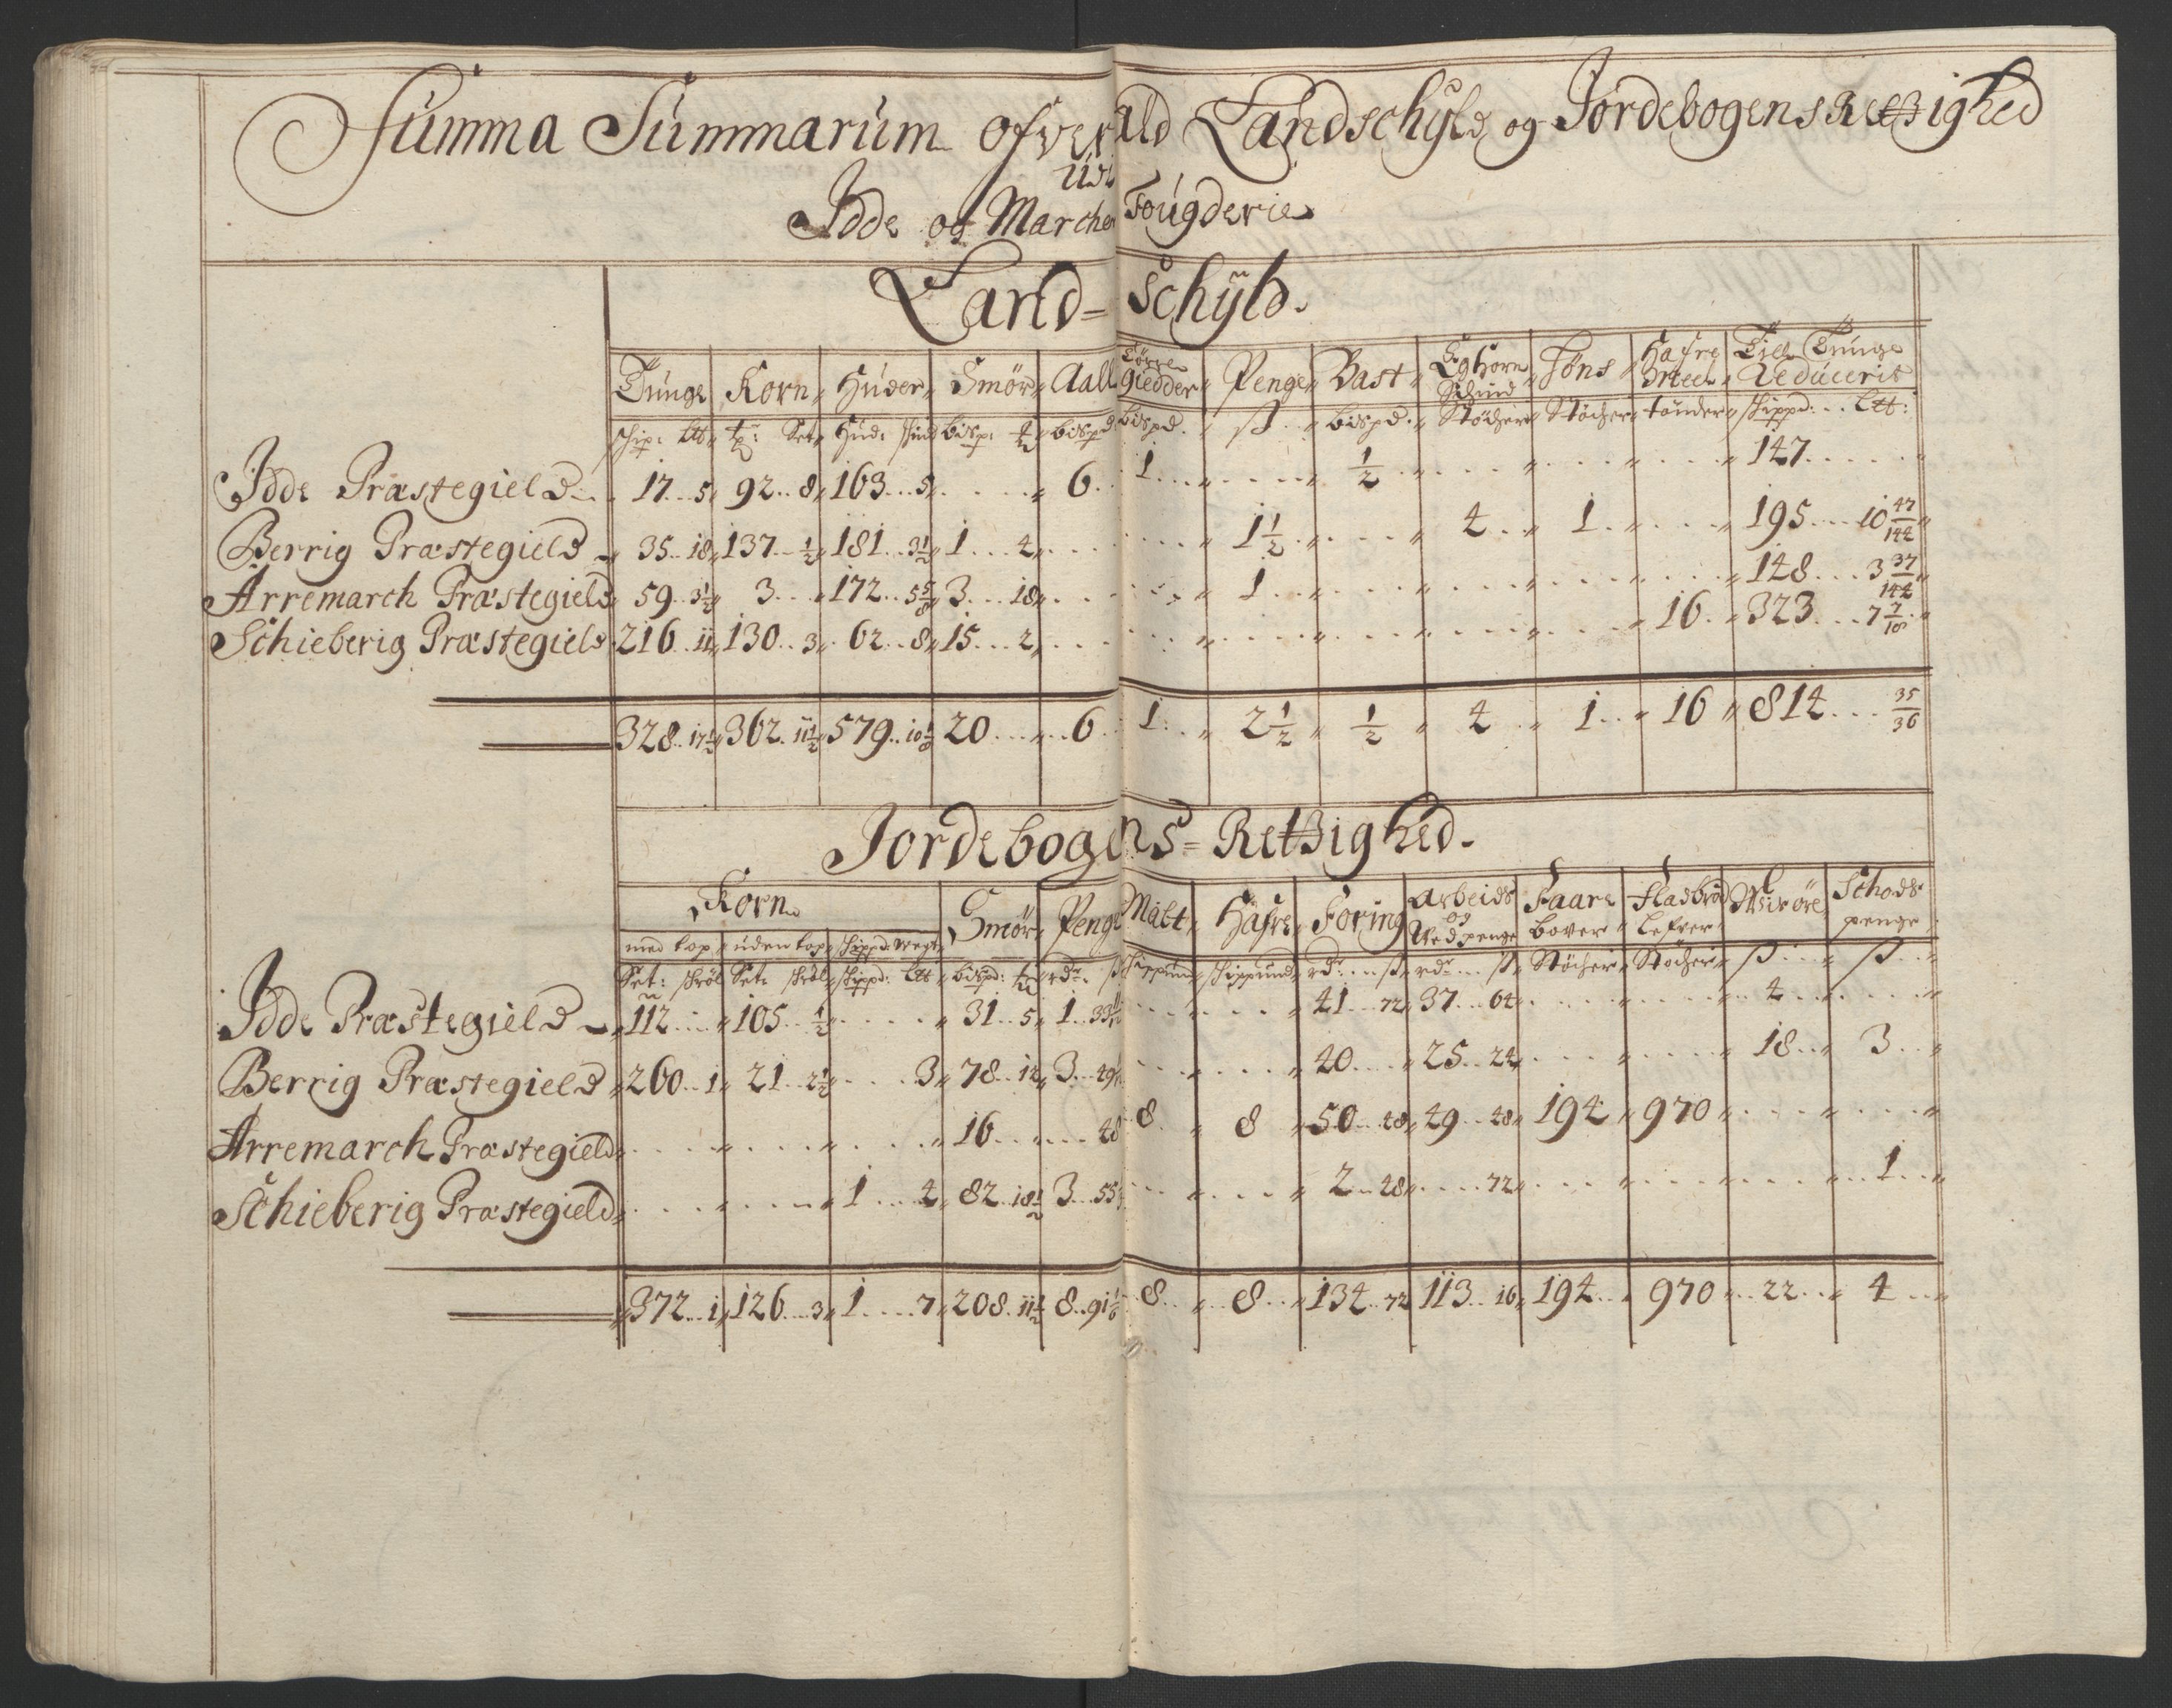 Summa Summarum ofver ald Landschyld og Jordebogens Retzighed
Udi
Idde og Marcher Fougderie
Land-Schyld.
Tunge Korn Huder Smør Aall Tørre Giedder Penge Bast Eghorn Schind Føns Hafre Til Tunge Reducerit
bispd. bispd. bispd. Støcher Støcher tønder schippd:
Idde Præstegield 17 5 92 8 163 5 6 1 1/2 147
Berrig Præstegield 35 18 137 1/2 181 3 1/2 1 4 1 1/2 4 1 195 10 47/144
Arremarch Præstegield 59 3 1/2 3 172 5 5/8 3 18 1 148 3 37/144
Schieberig Præstegield 216 11 130 3 62 8 15 2 16 323 7 7/18
328 17 1/2 362 11 1/2 579 10 1/8 20 6 1 2 1/2 1/2 4 1 16 814 35/36
Jordebogens-Retzighed.
Korn Smør Penge Malt Hafre Foring Arbeids og Ved penge Faare bover Fladbrød Lefver Schods penge
med top uden top schippd: vegt
Støcher Støcher
Idde Præstegield 112 105 1/2 31 5 1 33 41 72 37 64 4
Berrig Præstegield 260 1 21 2 1/2 3 78 12 3 40 25 24 18 3
Arremarch Præstegield 16 48 8 8 50 48 49 48 194 970
Schieberig Præstegield 1 4 82 18 1/2 3 55 2 48 72 1
372 1 126 3 1 7 208 11 1/2 8 91 1/6 8 8 134 72 113 16 194 970 22 4